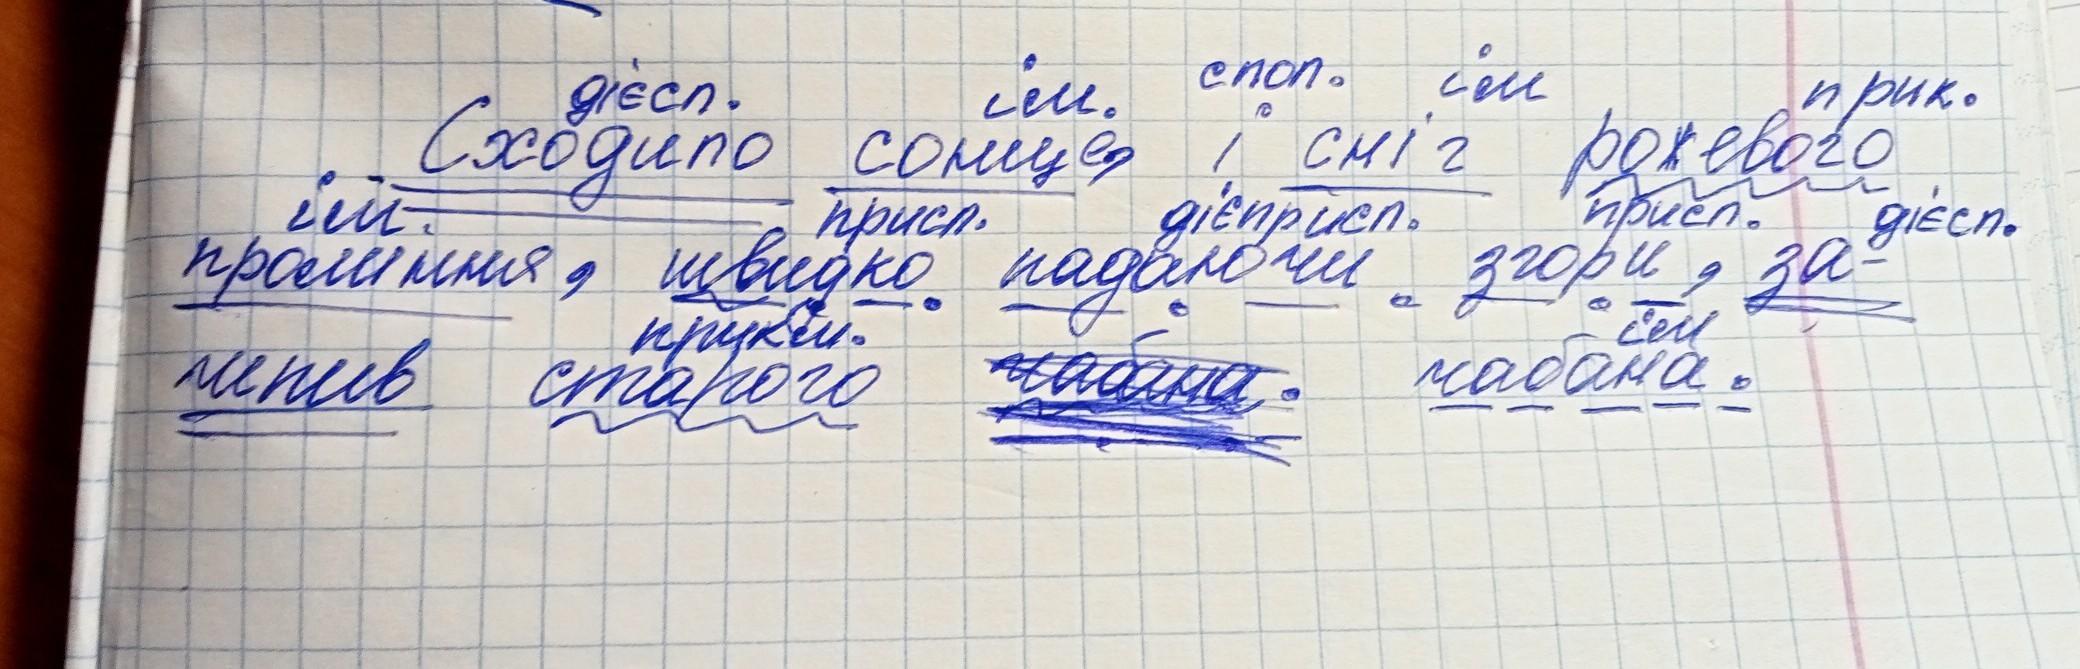 дієсл. ім. спол. ім прик.
Сходило сонце, і сніг рожевого
ім. присл. дієприсл. присл. дієсл.
проміння, швидко падаючи згори, за-
прикм. ім
сліпив старого чабана. чабана.